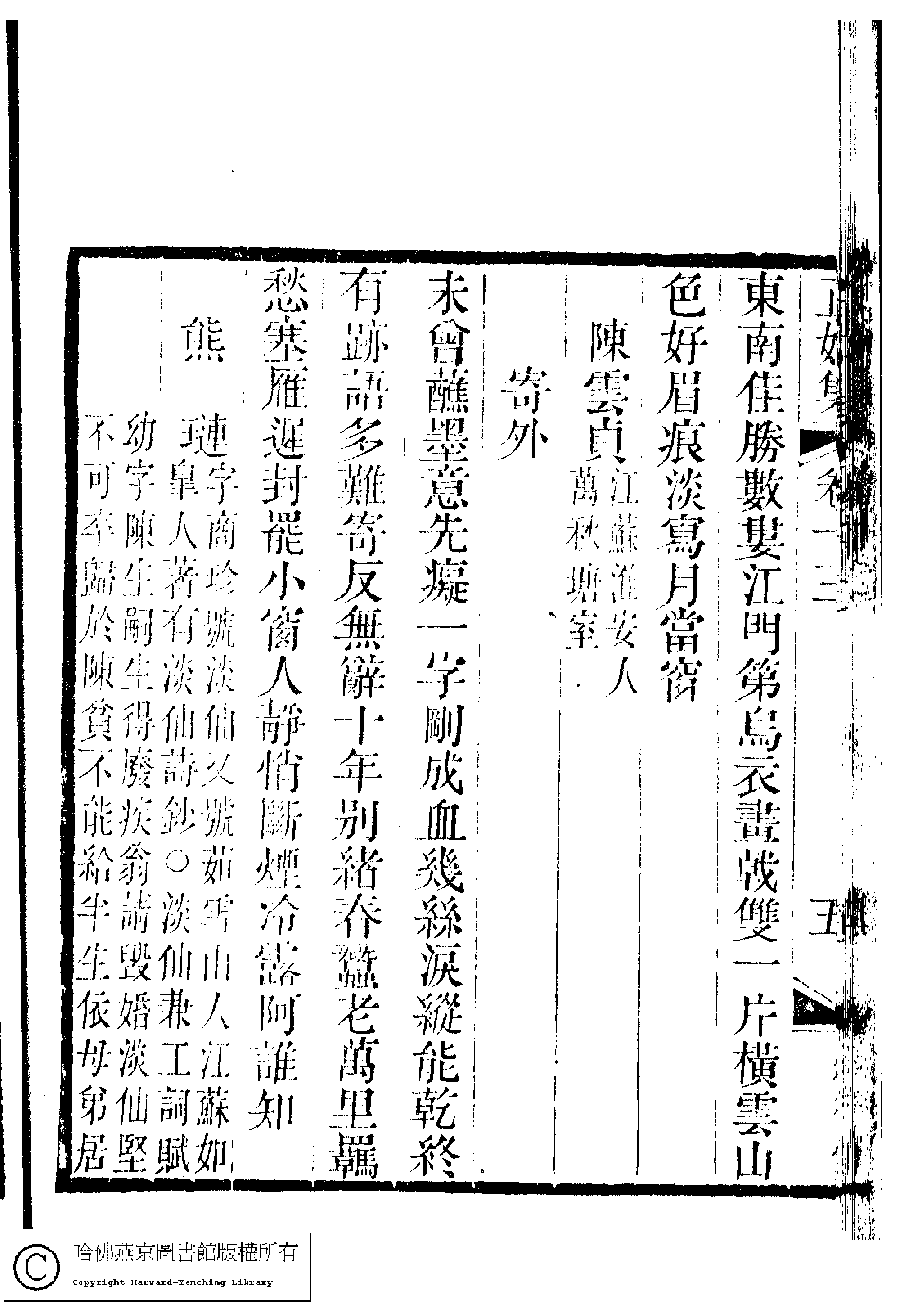 東南佳勝數婁江門第烏衣畫戟雙一片橫雲山
色好眉痕淡寫月當窗
陳雲貞
江蘇淮安人
萬秋塘室
寄外
未曾蘸墨意先癡一字剛成血幾絲淚縱能乾終
有跡語多難寄反無辭十年別緒春蠶老萬里羈
愁塞雁遲封罷小窗人靜悄斷煙冷露阿誰知
熊璉
字商珍號淡仙又號茹雪山人江蘇如
皐人著有淡仙詩鈔○淡仙兼工詞賦
幼字陳生嗣生得廢疾翁請毀婚淡仙堅
不可卒歸於陳貧不能給半生依母弟居
哈佛燕京圖書館版權所有
Copyright Harvard-Yenching Library